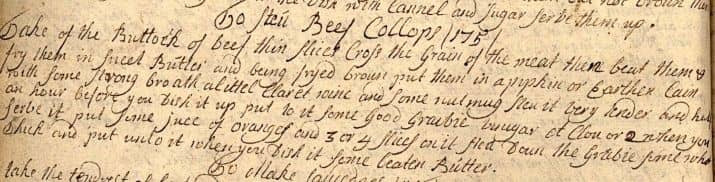 the Dish with Cannel and Sugar serve them up.
To Steu Beef Collops /1751
Take of the Buttock of beef thin slices Cross the Grain of the meat then beat them &
fry them in sweet Butter and being fryed broun put them in a pipkin or Earthen Cann
with some strong broath a littel Claret wine and some nutmug steu it very tender and half
an hour before you Dish it up put to it some good Gravie vinugar
serve it put some juce of oranges and 3 or 4 slices on it the Gravie
thick and put unto it when you Dish it some beaten Butter.
take the To Make Sausages